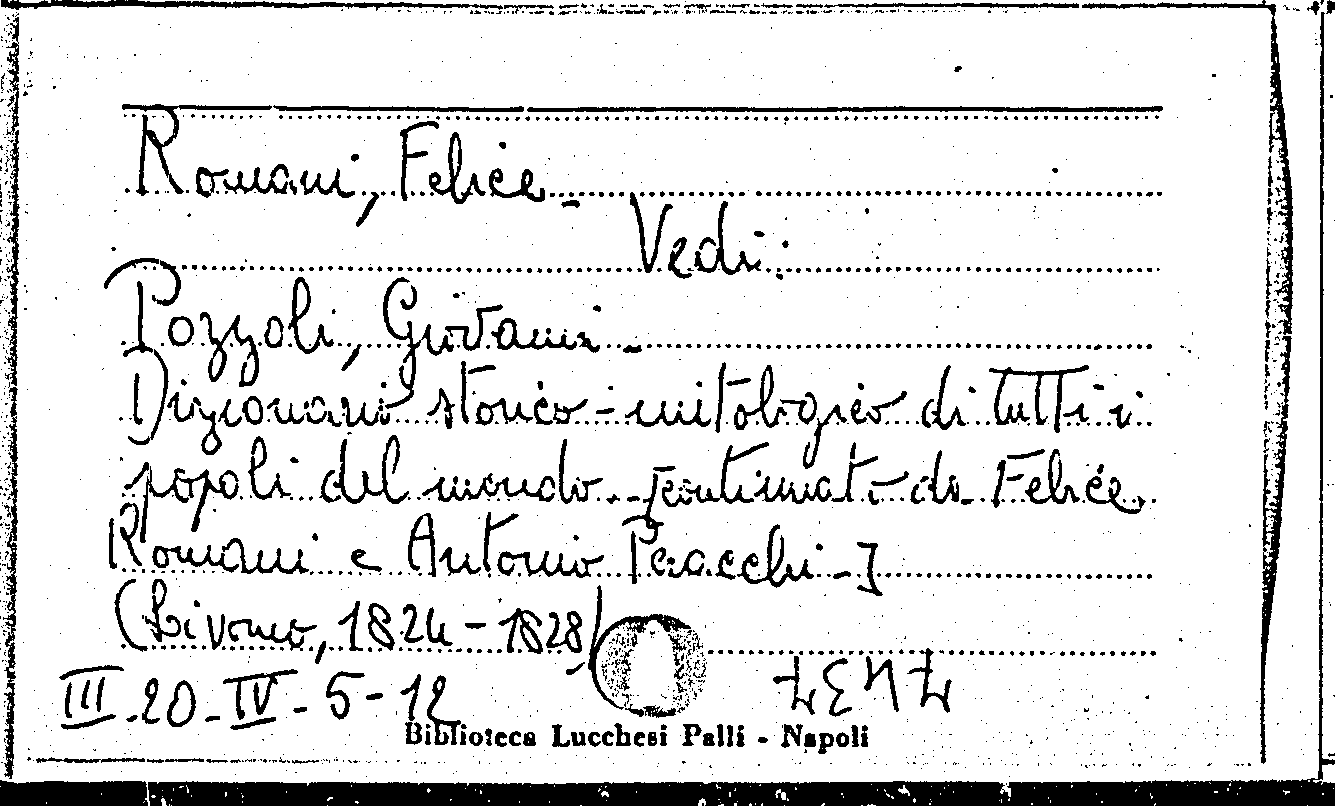 Romani, Felice -
Vedi:
Pozzoli, Giovanni -
Dizionario storico-mitologico di tutti i
popoli del mondo - [continuato da Felice
Romani e Antonio Peracchi -]
(Livorno, 1824-1828)
III-20-IV-5-12
Biblioteca Lucchesi Palli - Napoli